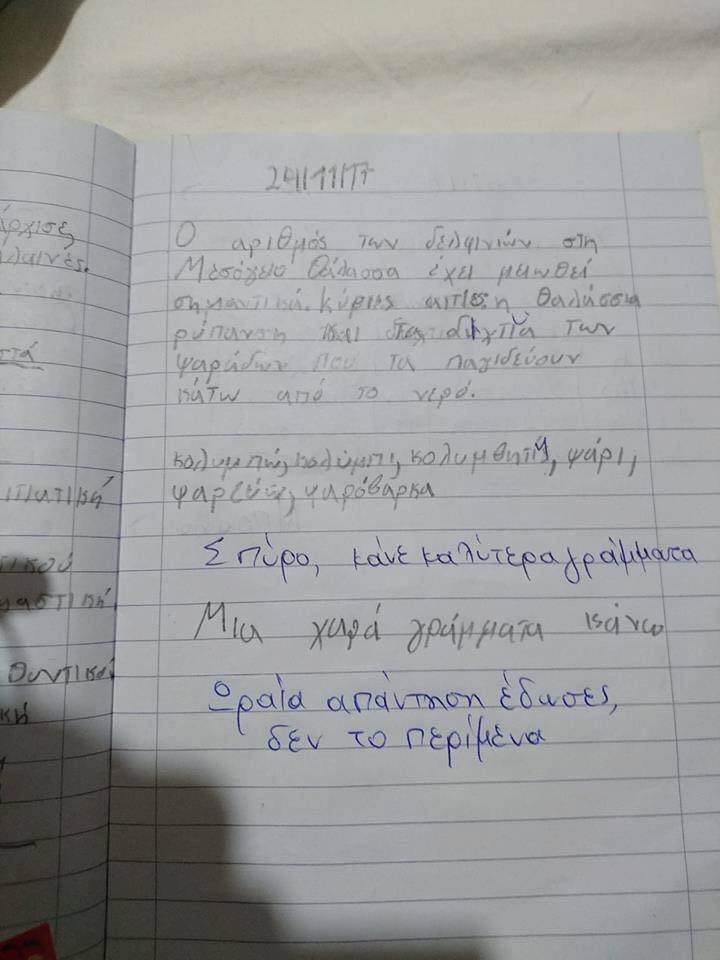 άρχισε,
λαινές.
στά
ιτιατική
τικού
αστική.
θυντικού
κή
24/11/17
Ο αριθμός των δελφινιών στη
Μεσόγειο Θάλασσα έχει μειωθεί
σημαντικά. Κύριες αιτίες η θαλάσσια
ρύπανση και δίχτυα των
ψαράδων που τα παγιδεύουν
κάτω από το νερό.
κολυμπώ, κολύμπι, κολυμβητής, ψάρι,
ψαρεύω, ψαρόβαρκα
Σπύρο, κάνε καλύτερα γράμματα
Μια χαρά γράμματα κάνω
Ωραία απάντηση έδωσες,
δεν το περίμενα